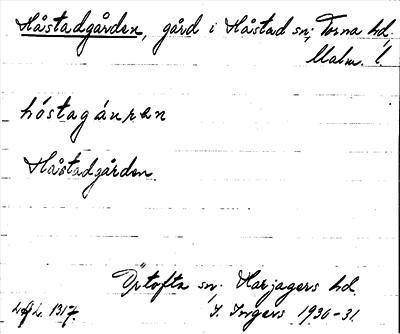 Håstadgården, gård i Håstad sn; Torna hd,
Malm. l.
hóstagáuren
Håstadgården.
Örtofta sn, Harjagers hd.
I. Ingers 1930-31.